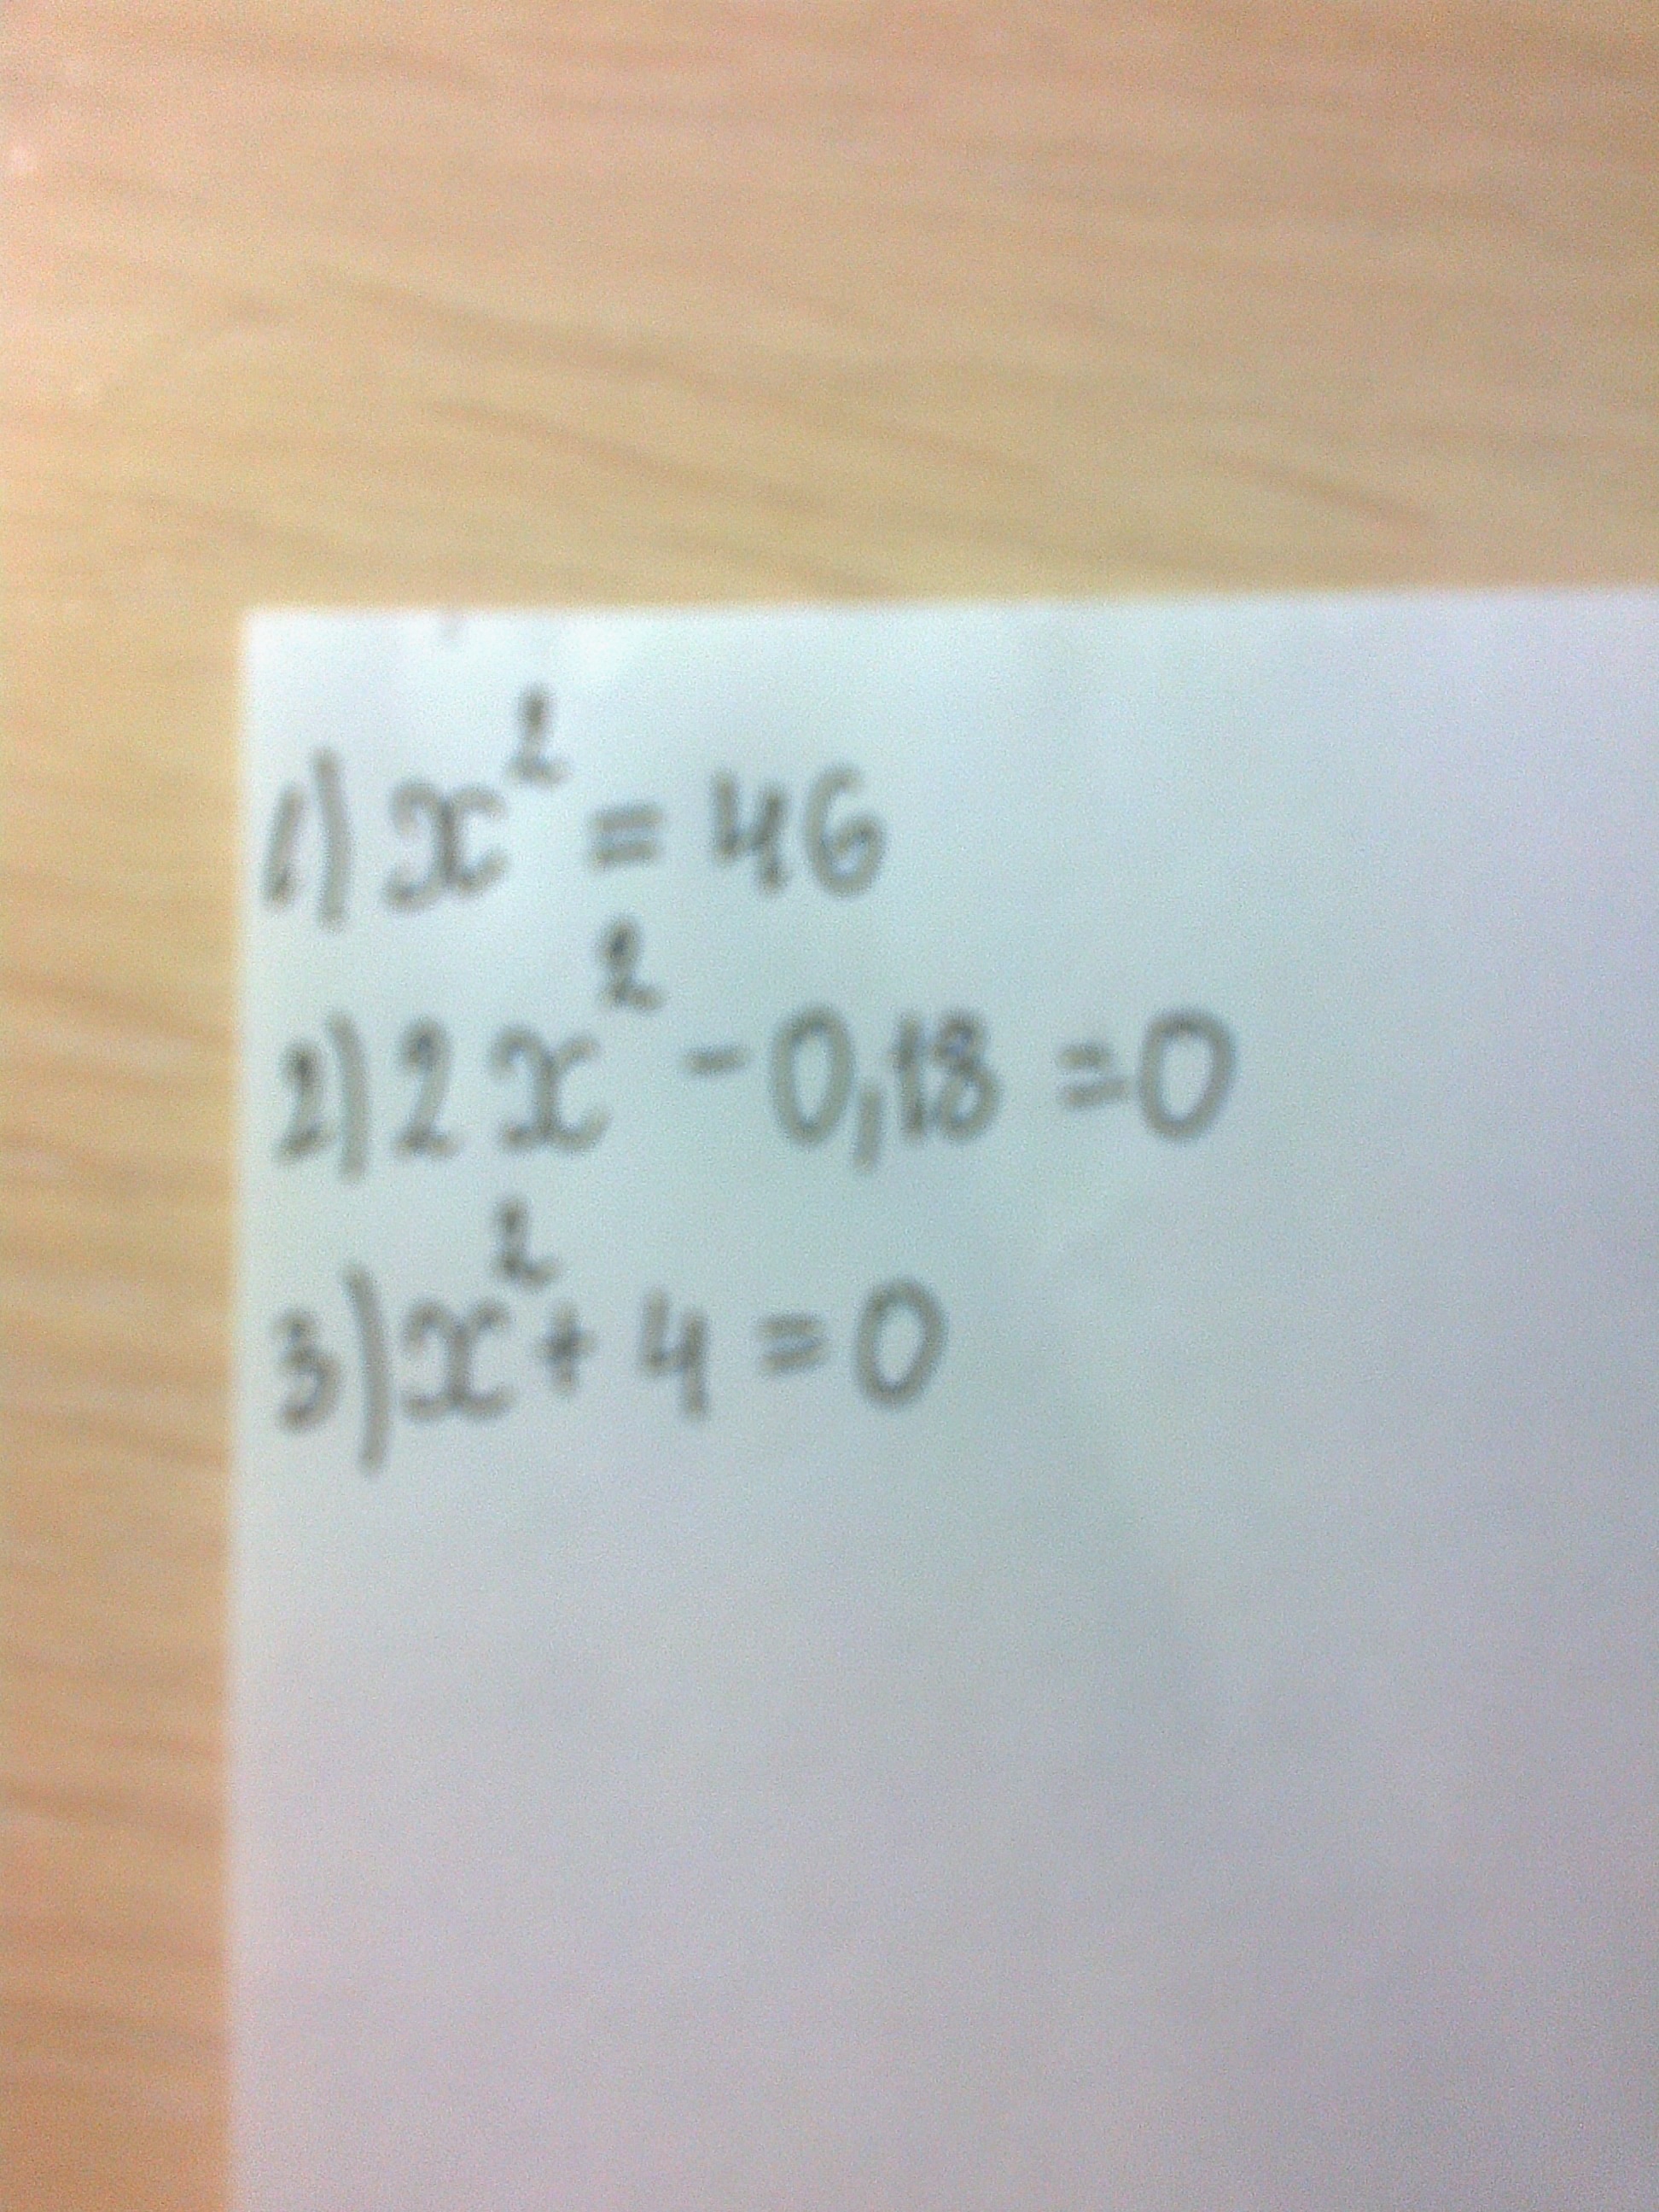 1) x² = 46
2) 2x² - 0,18 = 0
3) x² + 4 = 0